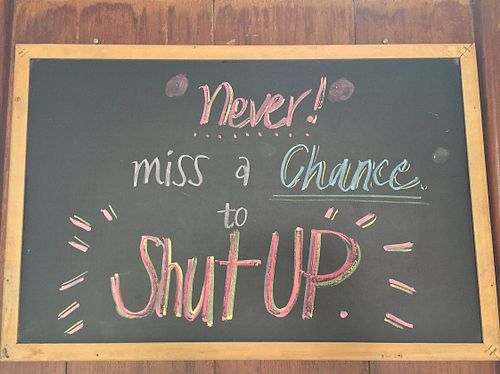 Never!
miss a Chance.
to
Shut UP.